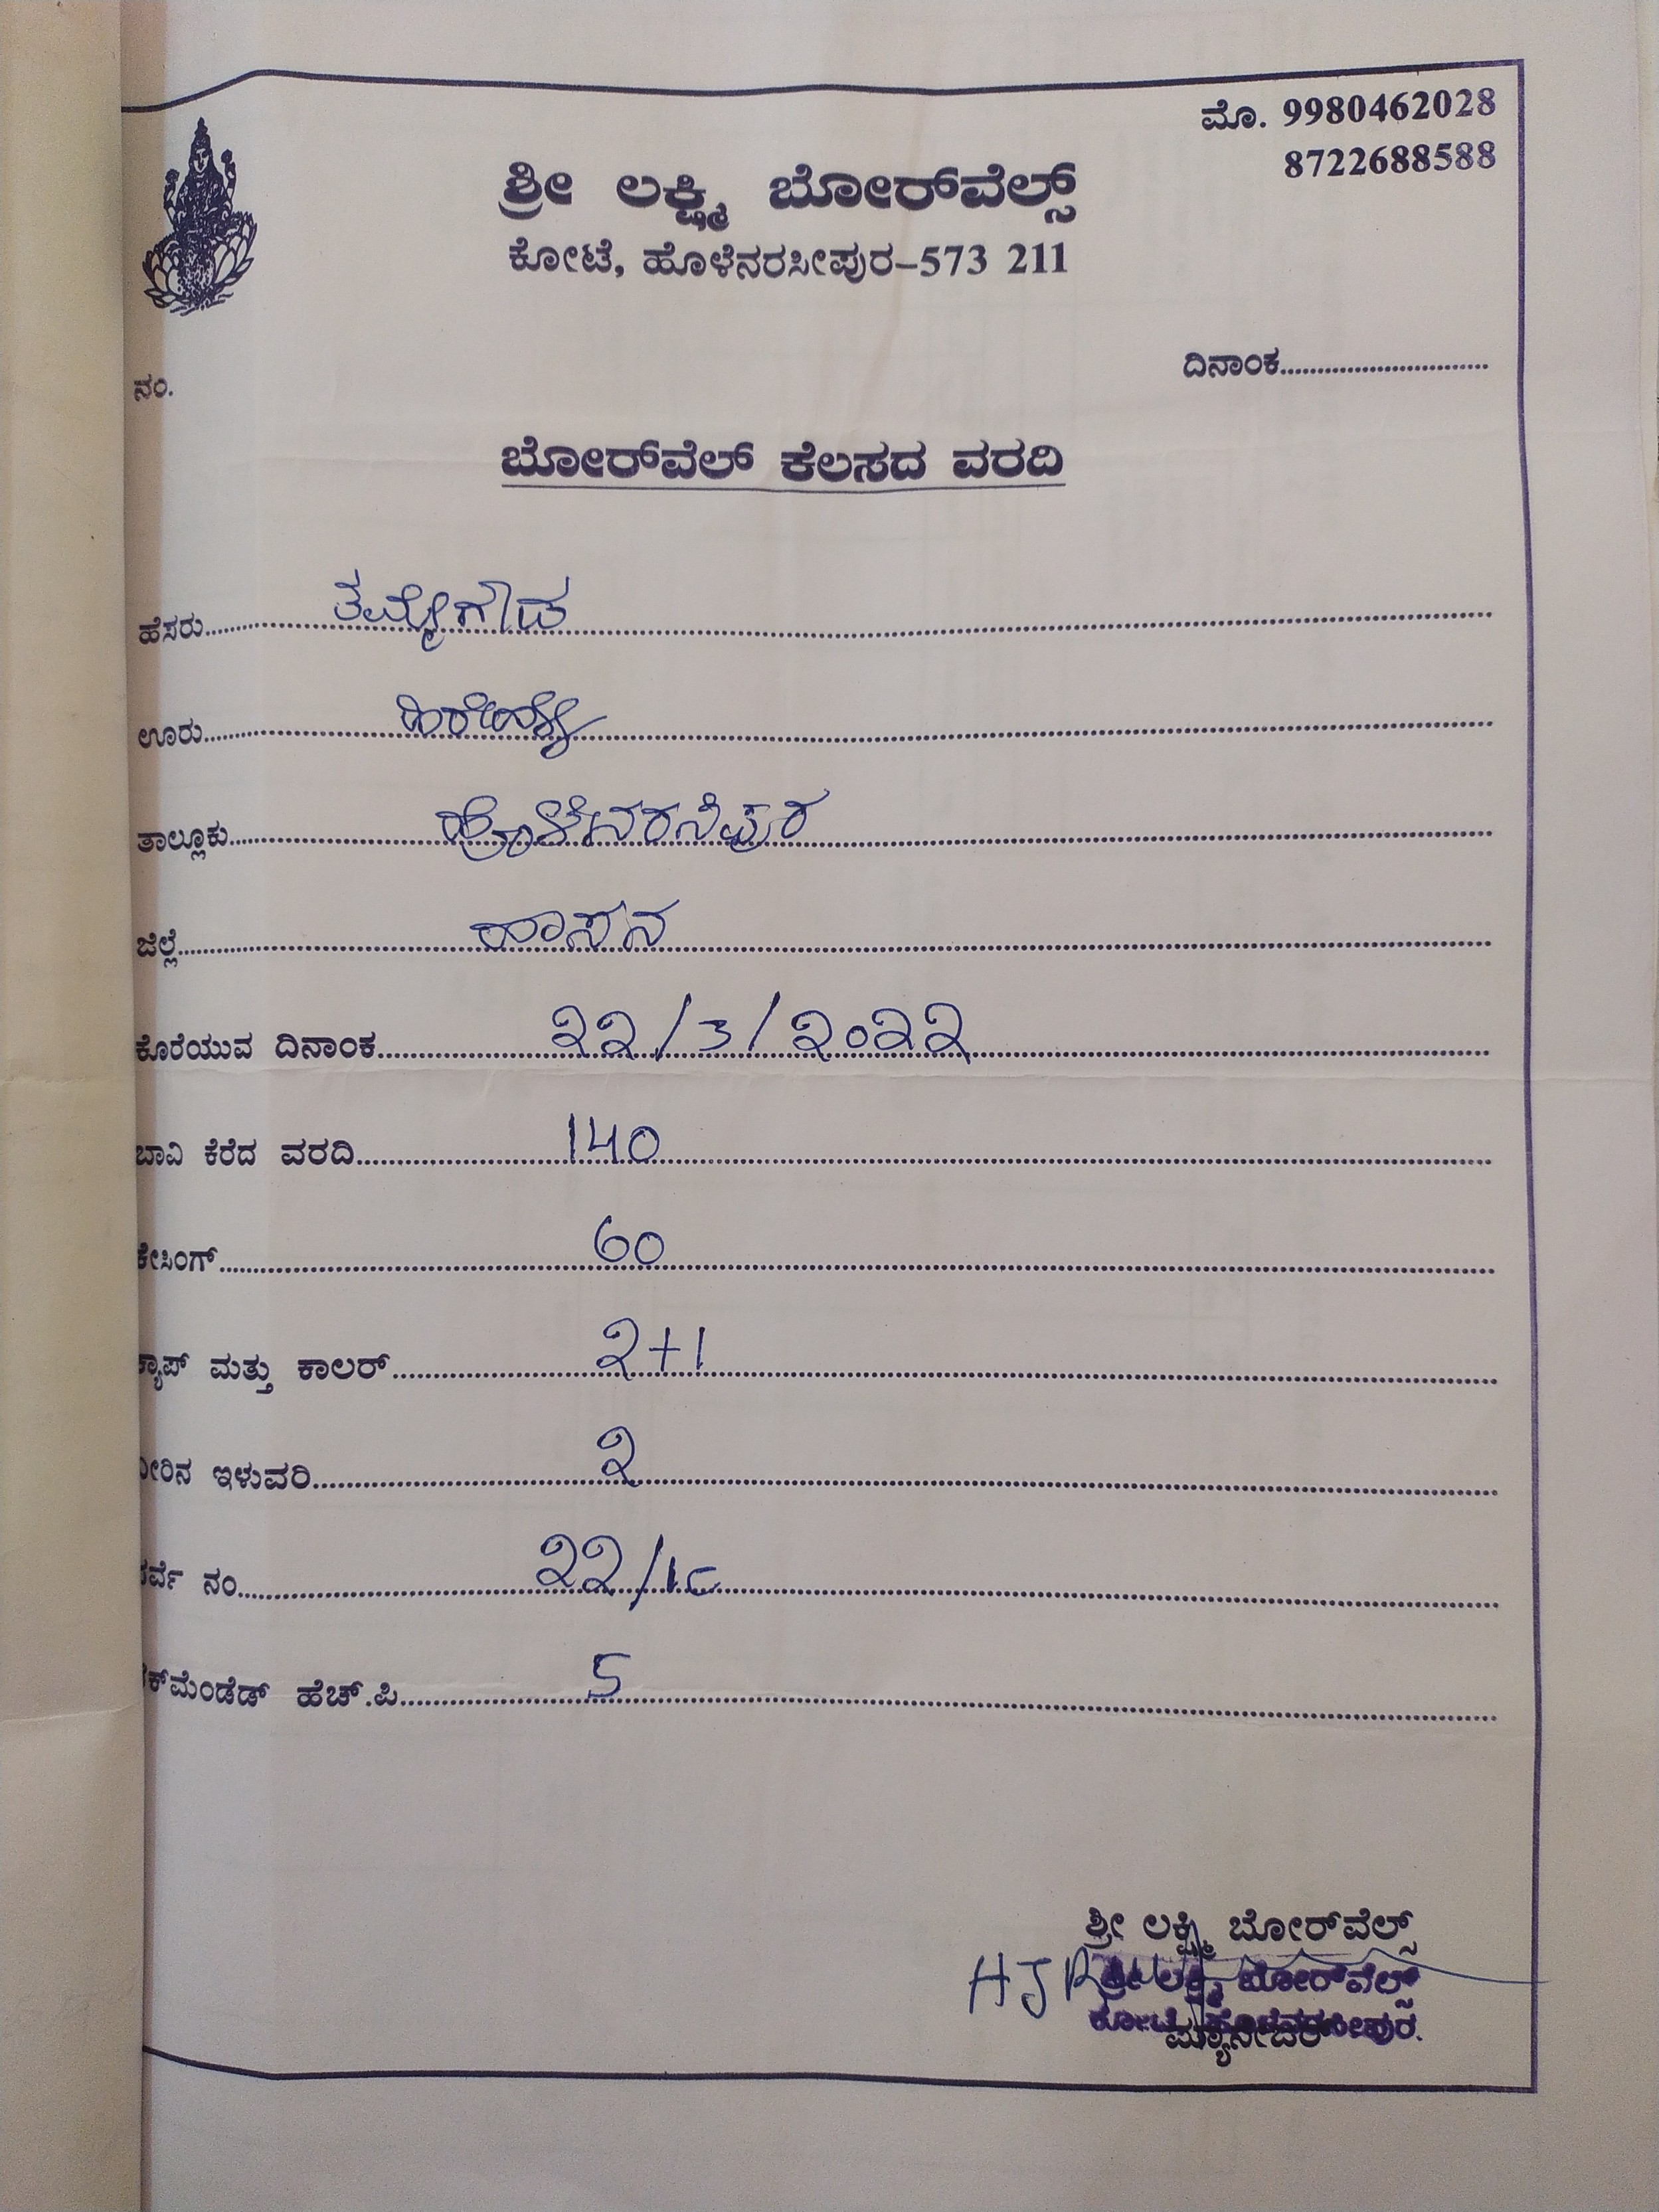 ಮೊ. 9980462028
8722688588
ಶ್ರೀ ಲಕ್ಷ್ಮಿ ಬೋರ್‌ವೆಲ್ಸ್
ಕೋಟೆ, ಹೊಳೆನರಸೀಪುರ–573 211
ನಂ.
ದಿನಾಂಕ
ಬೋರ್‌ವೆಲ್ ಕೆಲಸದ ವರದಿ
ಹೆಸರು ತಮ್ಮೇಗೌಡ
ಊರು
ತಾಲ್ಲೂಕು ಹೊಳೇನರಸಿಪುರ
ಜಿಲ್ಲೆ ಹಾಸನ
ಕೊರೆಯುವ ದಿನಾಂಕ 22/3/2022
ಬಾವಿ ಕೆರೆದ ವರದಿ 140
ಕೇಸಿಂಗ್ 60
ಕ್ಯಾಪ್ ಮತ್ತು ಕಾಲರ್ 2+1
ನೀರಿನ ಇಳುವರಿ 2
ಸರ್ವೆ ನಂ 22/
ರೆಕ್‌ಮೆಂಡೆಡ್ ಹೆಚ್.ಪಿ 5
ಶ್ರೀ ಲಕ್ಷ್ಮಿ ಬೋರ್‌ವೆಲ್ಸ್
ಶ್ರೀ ಲಕ್ಷ್ಮಿ ಬೋರ್‌ವೆಲ್ಸ್
ಕೋಟೆ, ಹೊಳೆನರಸೀಪುರ.
ಮ್ಯಾನೇಜರ್